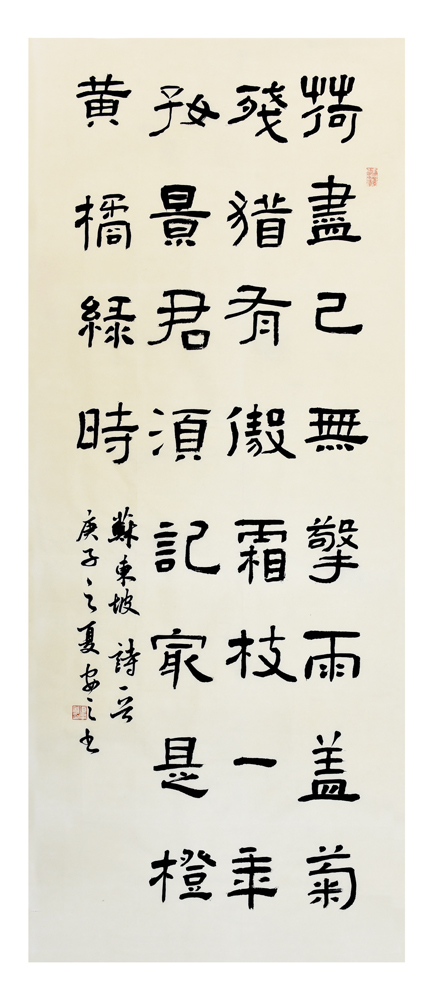 荷盡已無擎雨盖菊
殘猶有傲霜枝一年
好景君須記最是橙
黄橘綠時
蘇東坡詩一首
庚子之夏安之书